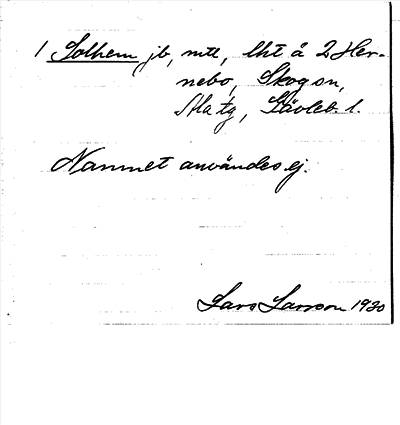 1 Solhem jb, mtl, lht å 2 Her-
nebo, Skog sn,
Ala tg, Gävleb. l.
Namnet användes ej.
Lars Larsson 1930